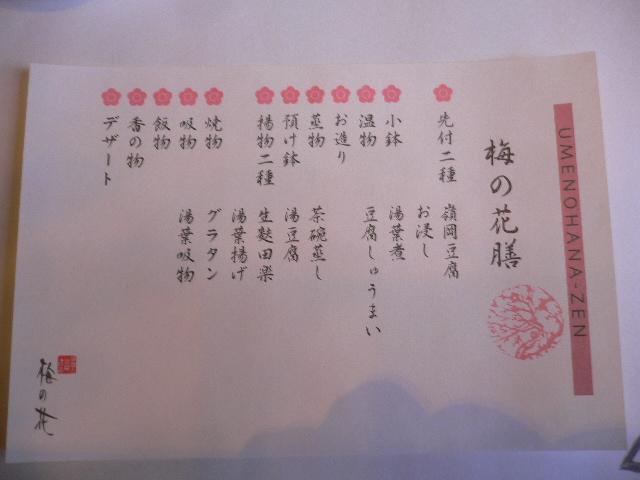 UMENOHANA-ZEN
梅の花膳
先付二種 嶺岡豆腐
お浸し
小鉢 湯葉煮
温物 豆腐しゅうまい
お造り
蒸物 茶碗蒸し
預け鉢 湯豆腐
揚物二種 生麩田楽
湯葉揚げ
焼物 グラタン
吸物 湯葉吸物
飯物
香の物
デザート
梅の花